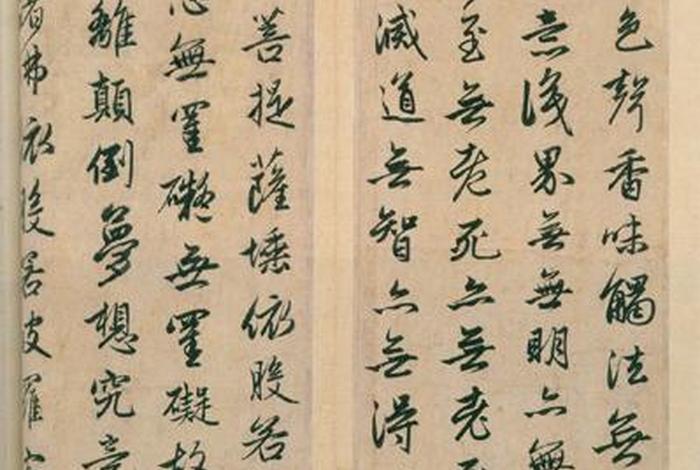 色聲香味觸法無
意識界無無明亦無
至無老死亦無老
滅道無智亦無得
菩提薩埵依般若
心無罣礙無罣礙故
離顛倒夢想究竟
佛依般若波羅